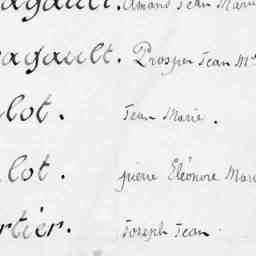 agault. Amand Jean Marie
agault. Prosper Jean M
llot. Jean Marie.
llot. pierre Eléonore Mari
rtier. Joseph Jean.